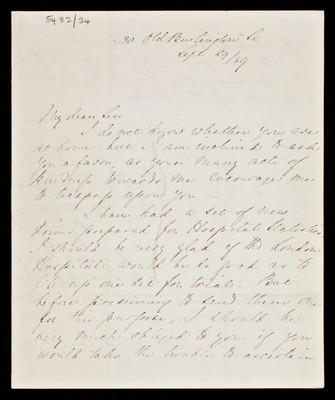 5482/34
30 Old Burlington St
Sept 29/59
My dear Sir
I do not know whether you are
at home but I am inclined to ask
you a favor, as your many acts of
kindness towards me encourage me
to trespass upon you —
I have had a set of new
Forms prepared for Hospital Statistics
I should be very glad if the London
Hospitals would be so good as to
fill up one set for trial. But
before presuming to send them one
for this purpose, I should be
very much obliged to you if you
would take the trouble to ascertain